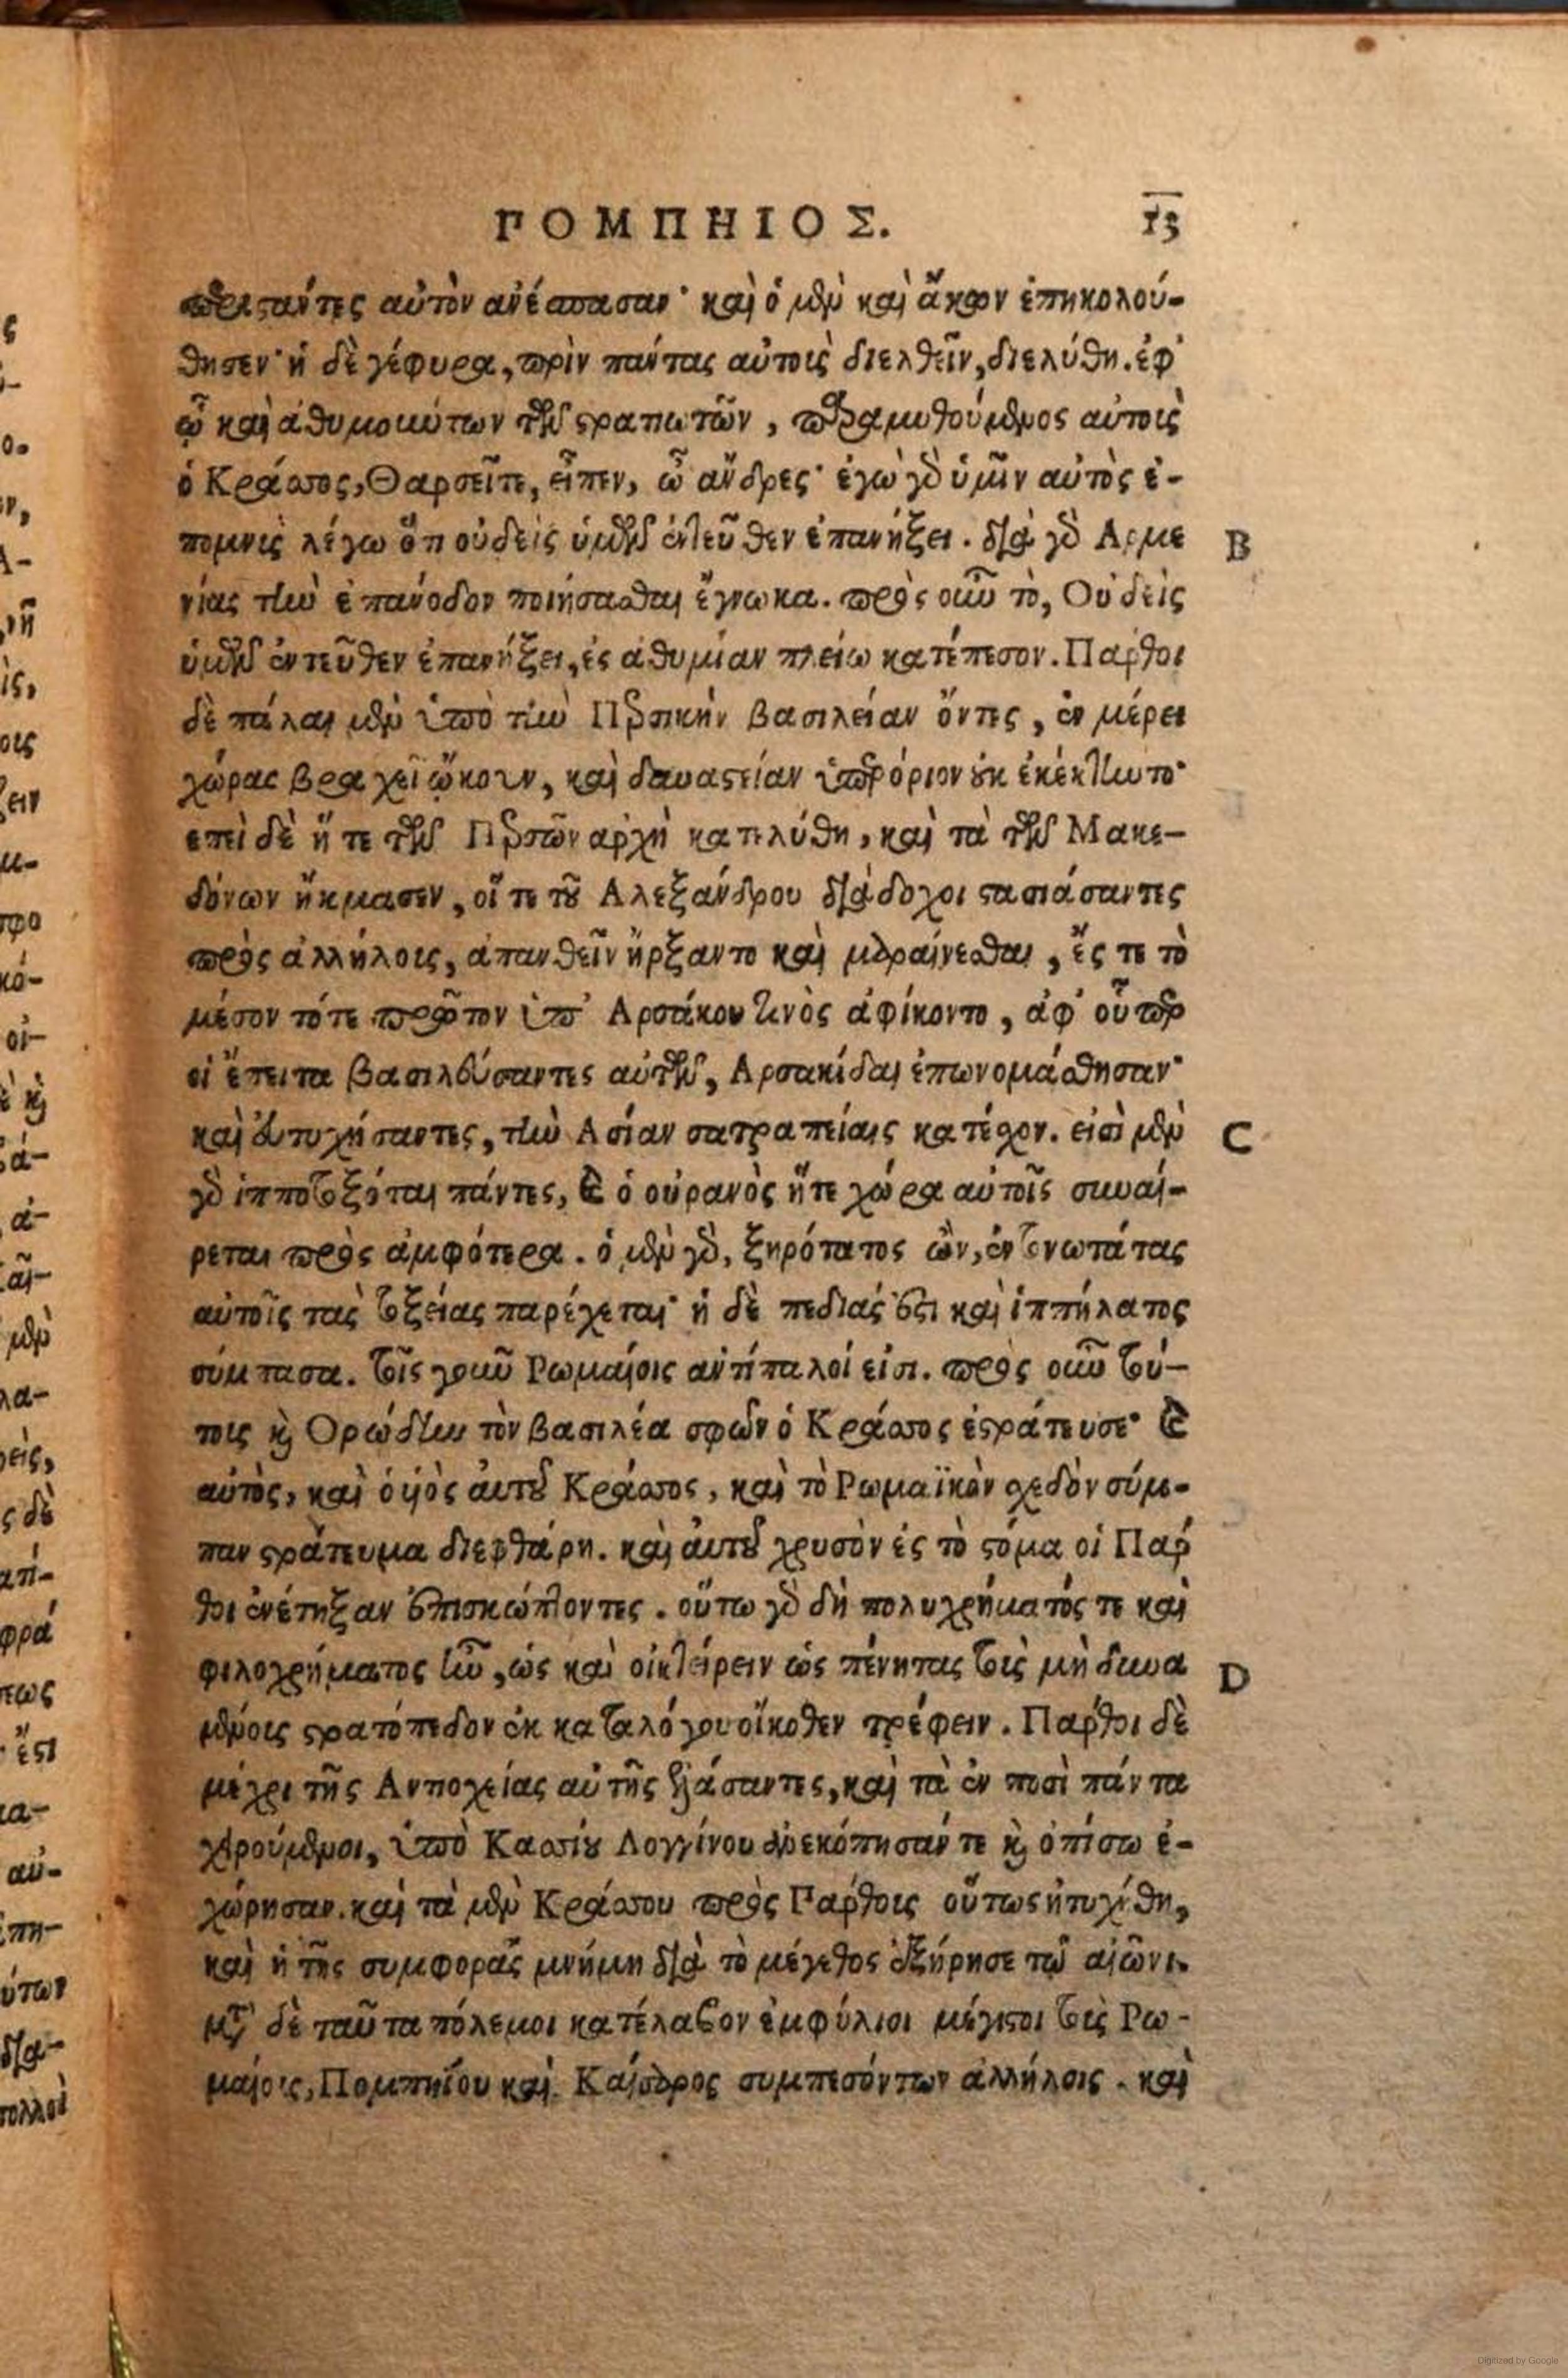 ΠΟΜΠΗΙΟΣ. 13
περιστάντες αὐτὸν ἀνέσπασαν· καὶ ὁ μὲν καὶ ἄκων ἐπηκολού-
θησεν· ἡ δὲ γέφυρα, πρὶν πάντας αὐτοὺς διελθεῖν, διελύθη. ἐφ'
ᾧ καὶ ἀθυμούντων τῶν στρατιωτῶν, παραμυθούμενος αὐτοὺς
ὁ Κράσσος, Θαρσεῖτε, εἶπεν, ὦ ἄνδρες· ἐγὼ γὰρ ὑμῖν αὐτὸς ἐ-
πομνὺς λέγω ὅτι οὐδεὶς ὑμῶν ἐντεῦθεν ἐπανήξει. διὰ γὰρ Αρμε
νίας τὴν ἐπάνοδον ποιήσασθαι ἔγνωκα. πρὸς οὖν τὸ, Οὐδεὶς
ὑμῶν ἐντεῦθεν ἐπανήξει, ἐς ἀθυμίαν πλείω κατέπεσον. Πάρθοι
δὲ πάλαι μὲν ὑπὸ τὴν Περσικὴν βασιλείαν ὄντες, ἐν μέρει
χώρας βραχεῖ ᾤκουν, καὶ δυναστείαν ὑπερόριον οὐκ ἐκέκτηντο·
ἐπεὶ δὲ ἥ τε τῶν Περσῶν ἀρχὴ κατελύθη, καὶ τὰ τῶν Μακε-
δόνων ἤκμασεν, οἵ τε τοῦ Αλεξάνδρου διάδοχοι στασιάσαντες
πρὸς ἀλλήλους, ἀπανθεῖν ἤρξαντο καὶ μαραίνεσθαι, ἔς τε τὸ
μέσον τότε πρῶτον ὑπ' Αρσάκου τινὸς ἀφίκοντο, ἀφ' οὗπερ
οἱ ἔπειτα βασιλεύσαντες αὐτῶν, Αρσακίδαι ἐπωνομάσθησαν·
καὶ εὐτυχήσαντες, τὴν Ασίαν σατραπείαις κατέχον. εἰσὶ μὲν
γὰρ ἱπποτοξόται πάντες, καὶ ὁ οὐρανὸς ἥτε χώρα αὐτοῖς συναί-
ρεται πρὸς ἀμφότερα. ὁ μὲν γὰρ, ξηρότατος ὢν, ἐντονωτάτας
αὐτοῖς τὰς τοξείας παρέχεται· ἡ δὲ πεδιάς ἐστι καὶ ἱππήλατος
σύμπασα. τοῖς γοῦν Ρωμαίοις ἀντίπαλοί εἰσι. πρὸς οὖν τού-
τους καὶ Ορώδην τὸν βασιλέα σφῶν ὁ Κράσσος ἐστράτευσε· καὶ
αὐτὸς, καὶ ὁ υἱὸς αὐτοῦ Κράσσος, καὶ τὸ Ρωμαϊκὸν σχεδὸν σύμ-
παν στράτευμα διεφθάρη. καὶ αὐτοῦ χρυσὸν ἐς τὸ στόμα οἱ Πάρ
θοι ἐνέτηξαν ἐπισκώπτοντες. οὕτω γὰρ δὴ πολυχρήματός τε καὶ
φιλοχρήματος ἦν, ὡς καὶ οἰκτείρειν ὡς πένητας τοὺς μὴ δυνα
μένους στρατόπεδον ἐκ καταλόγου οἴκοθεν τρέφειν. Πάρθοι δὲ
μέχρι τῆς Αντιοχείας αὐτῆς ἐλάσαντες, καὶ τὰ ἐν ποσὶ πάντα
χειρούμενοι, ὑπὸ Κασσίου Λογγίνου ἀπεκόπησάν τε καὶ ὀπίσω ἐ-
χώρησαν. καὶ τὰ μὲν Κράσσου πρὸς Πάρθους οὕτως ἠτυχήθη,
καὶ ἡ τῆς συμφορᾶς μνήμη διὰ τὸ μέγεθος ἐξήρκησε τῷ αἰῶνι.
μετὰ δὲ ταῦτα πόλεμοι κατέλαβον ἐμφύλιοι μέγιστοι τοὺς Ρω-
μαίους, Πομπηΐου καὶ Καίσαρος συμπεσόντων ἀλλήλοις. καὶ
B
C
D
Digitized by Google